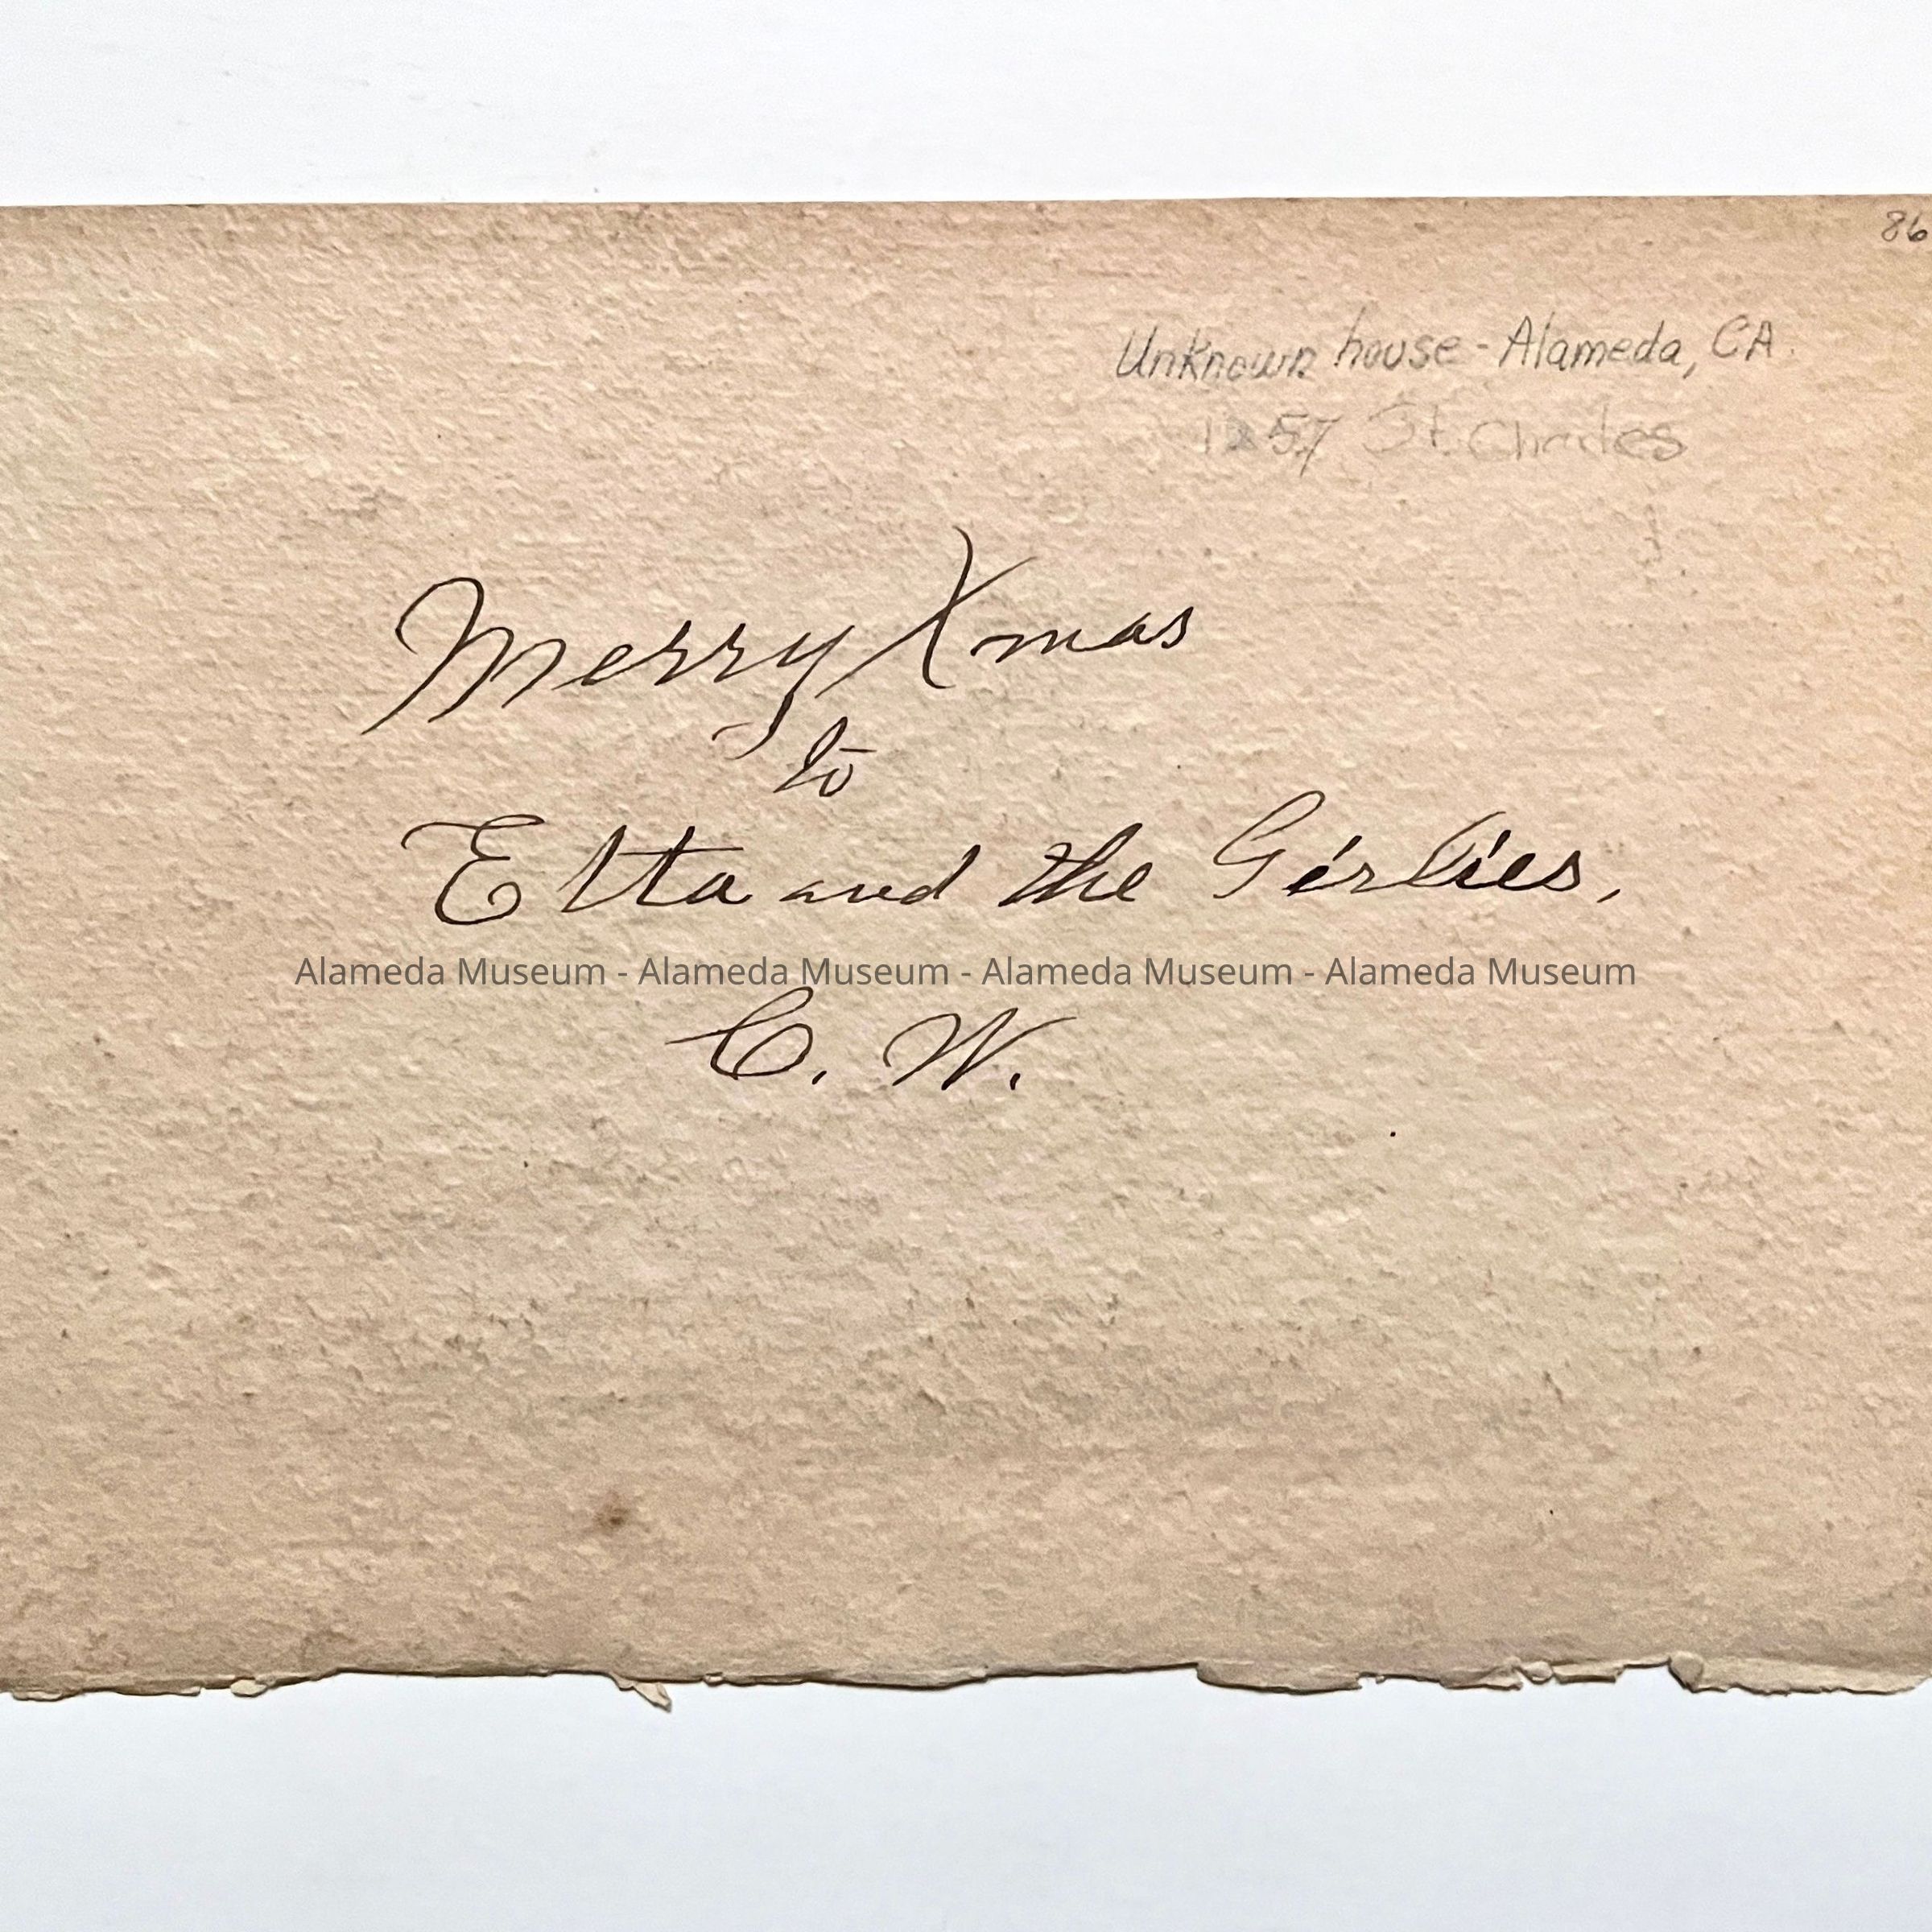 86
Unknown house - Alameda, CA.
1257 St. Charles
Merry Xmas
to
Etta and the Girlies,
Alameda Museum - Alameda Museum - Alameda Museum - Alameda Museum
C. W.